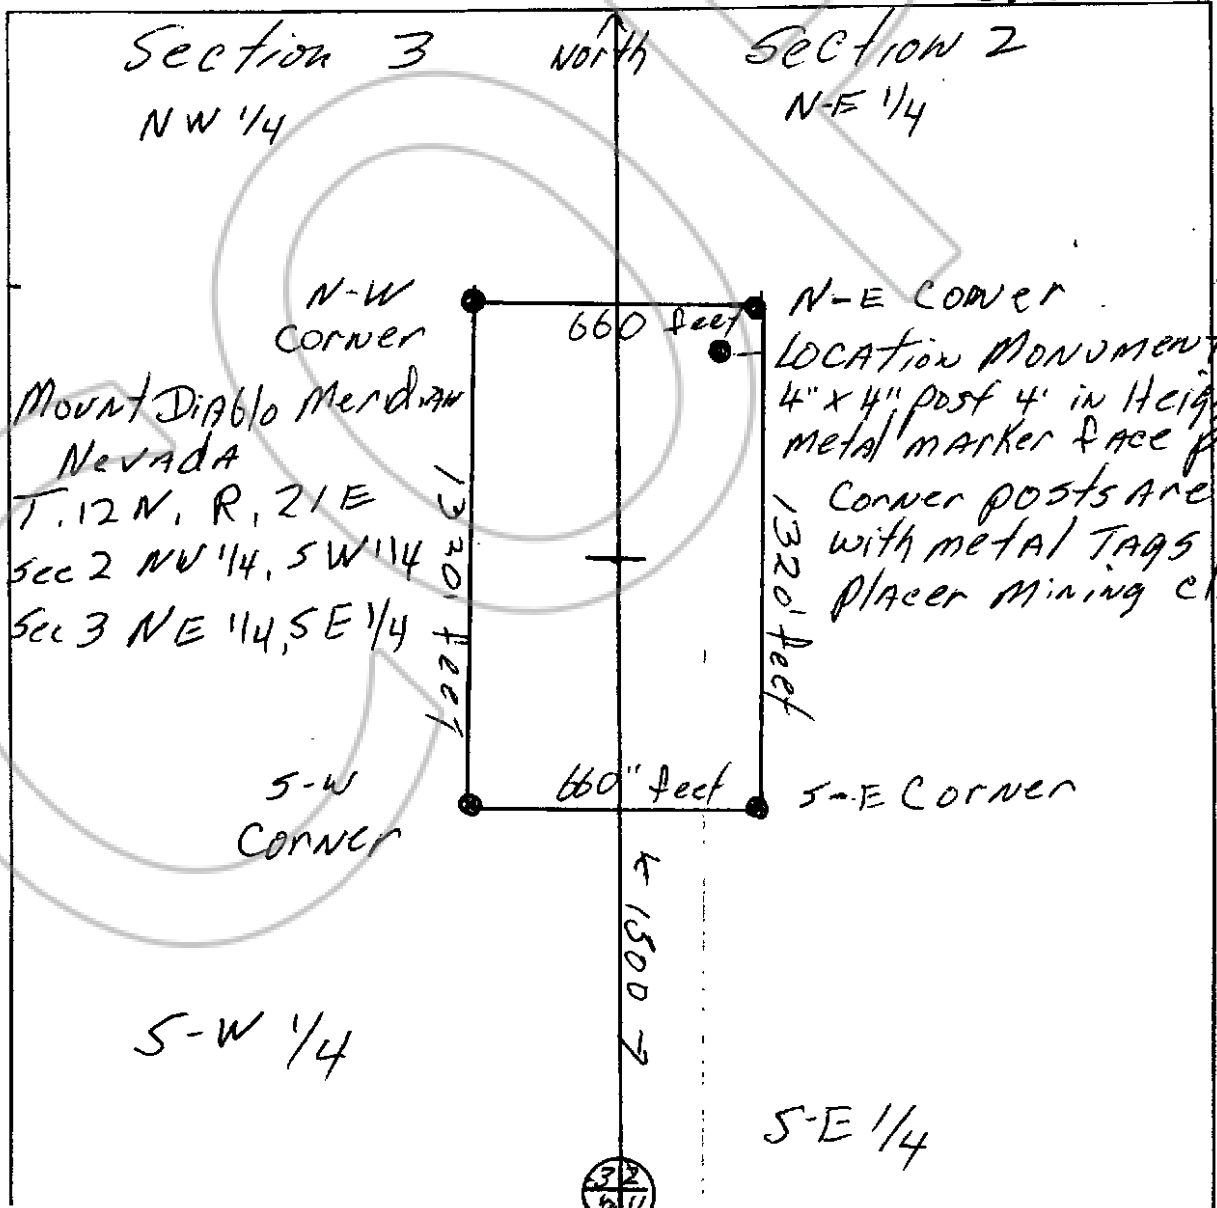 Section 3
North
Section 2
NW 1/4
N-E 1/4
N-W
Corner
660 feet
N-E Corner
Location Monument
4" x 4" post 4' in Heig
metal marker face p
Corner posts Are
with metal Tags
Placer Mining cl
Mount Diablo Meridian
Nevada
T. 12 N, R, 21 E
Sec 2 NW 1/4, SW 1/4
Sec 3 NE 1/4, SE 1/4
1320' feet
1320' feet
S-W
Corner
660" feet
S-E Corner
1500
S-W 1/4
S-E 1/4
3 2
11
COPY